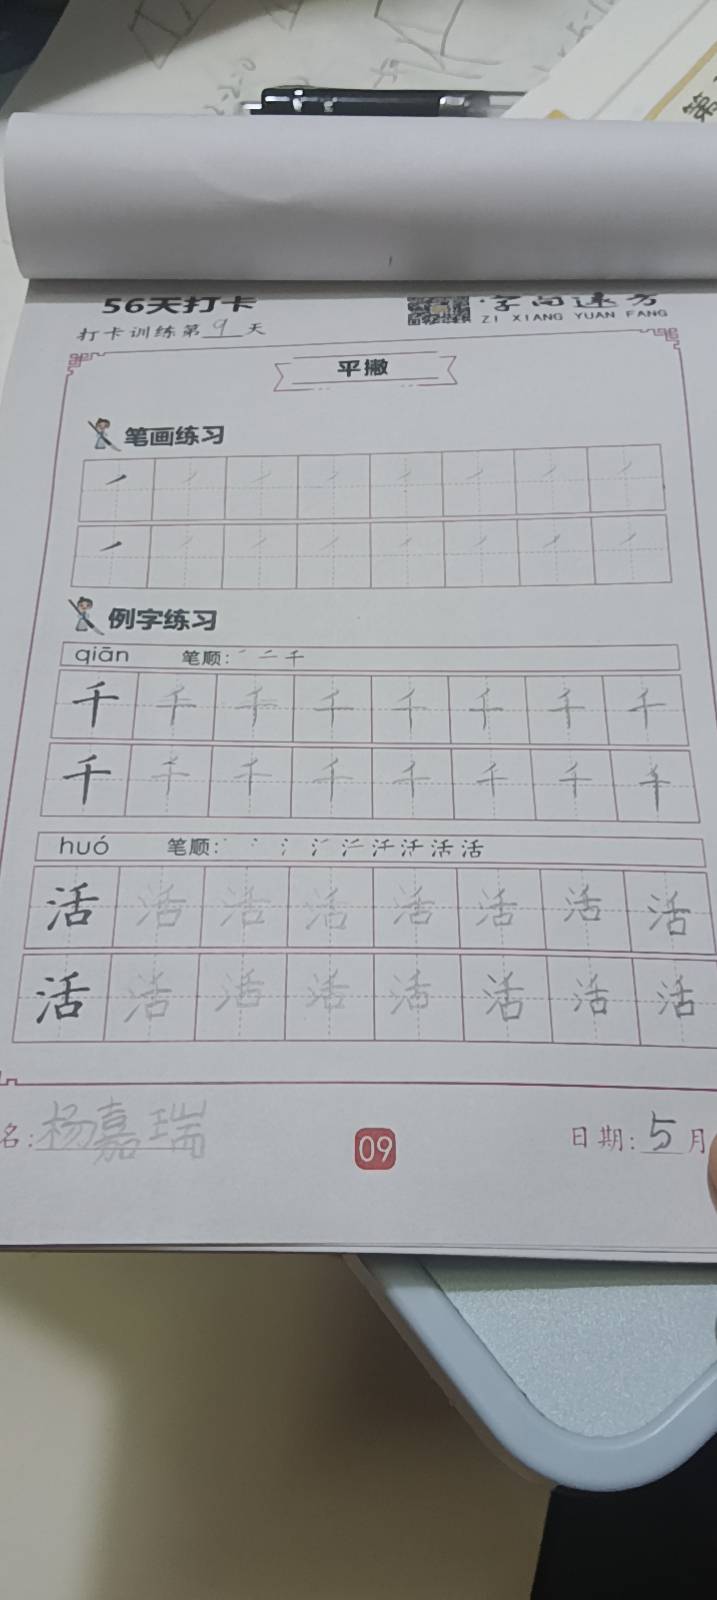 第
56天打卡
字向速方
ZI XIANG YUAN FANG
打卡训练第9天
平撇
笔画练习
例字练习
qiān 笔顺: 一 二 千
千 千 千 千 千 千 千 千
千 千 千 千 千 千 千 千
huó 笔顺: 活 活
活 活 活 活 活 活 活 活
活 活 活 活 活 活 活 活
名: 杨嘉瑞
09
日期: 5 月